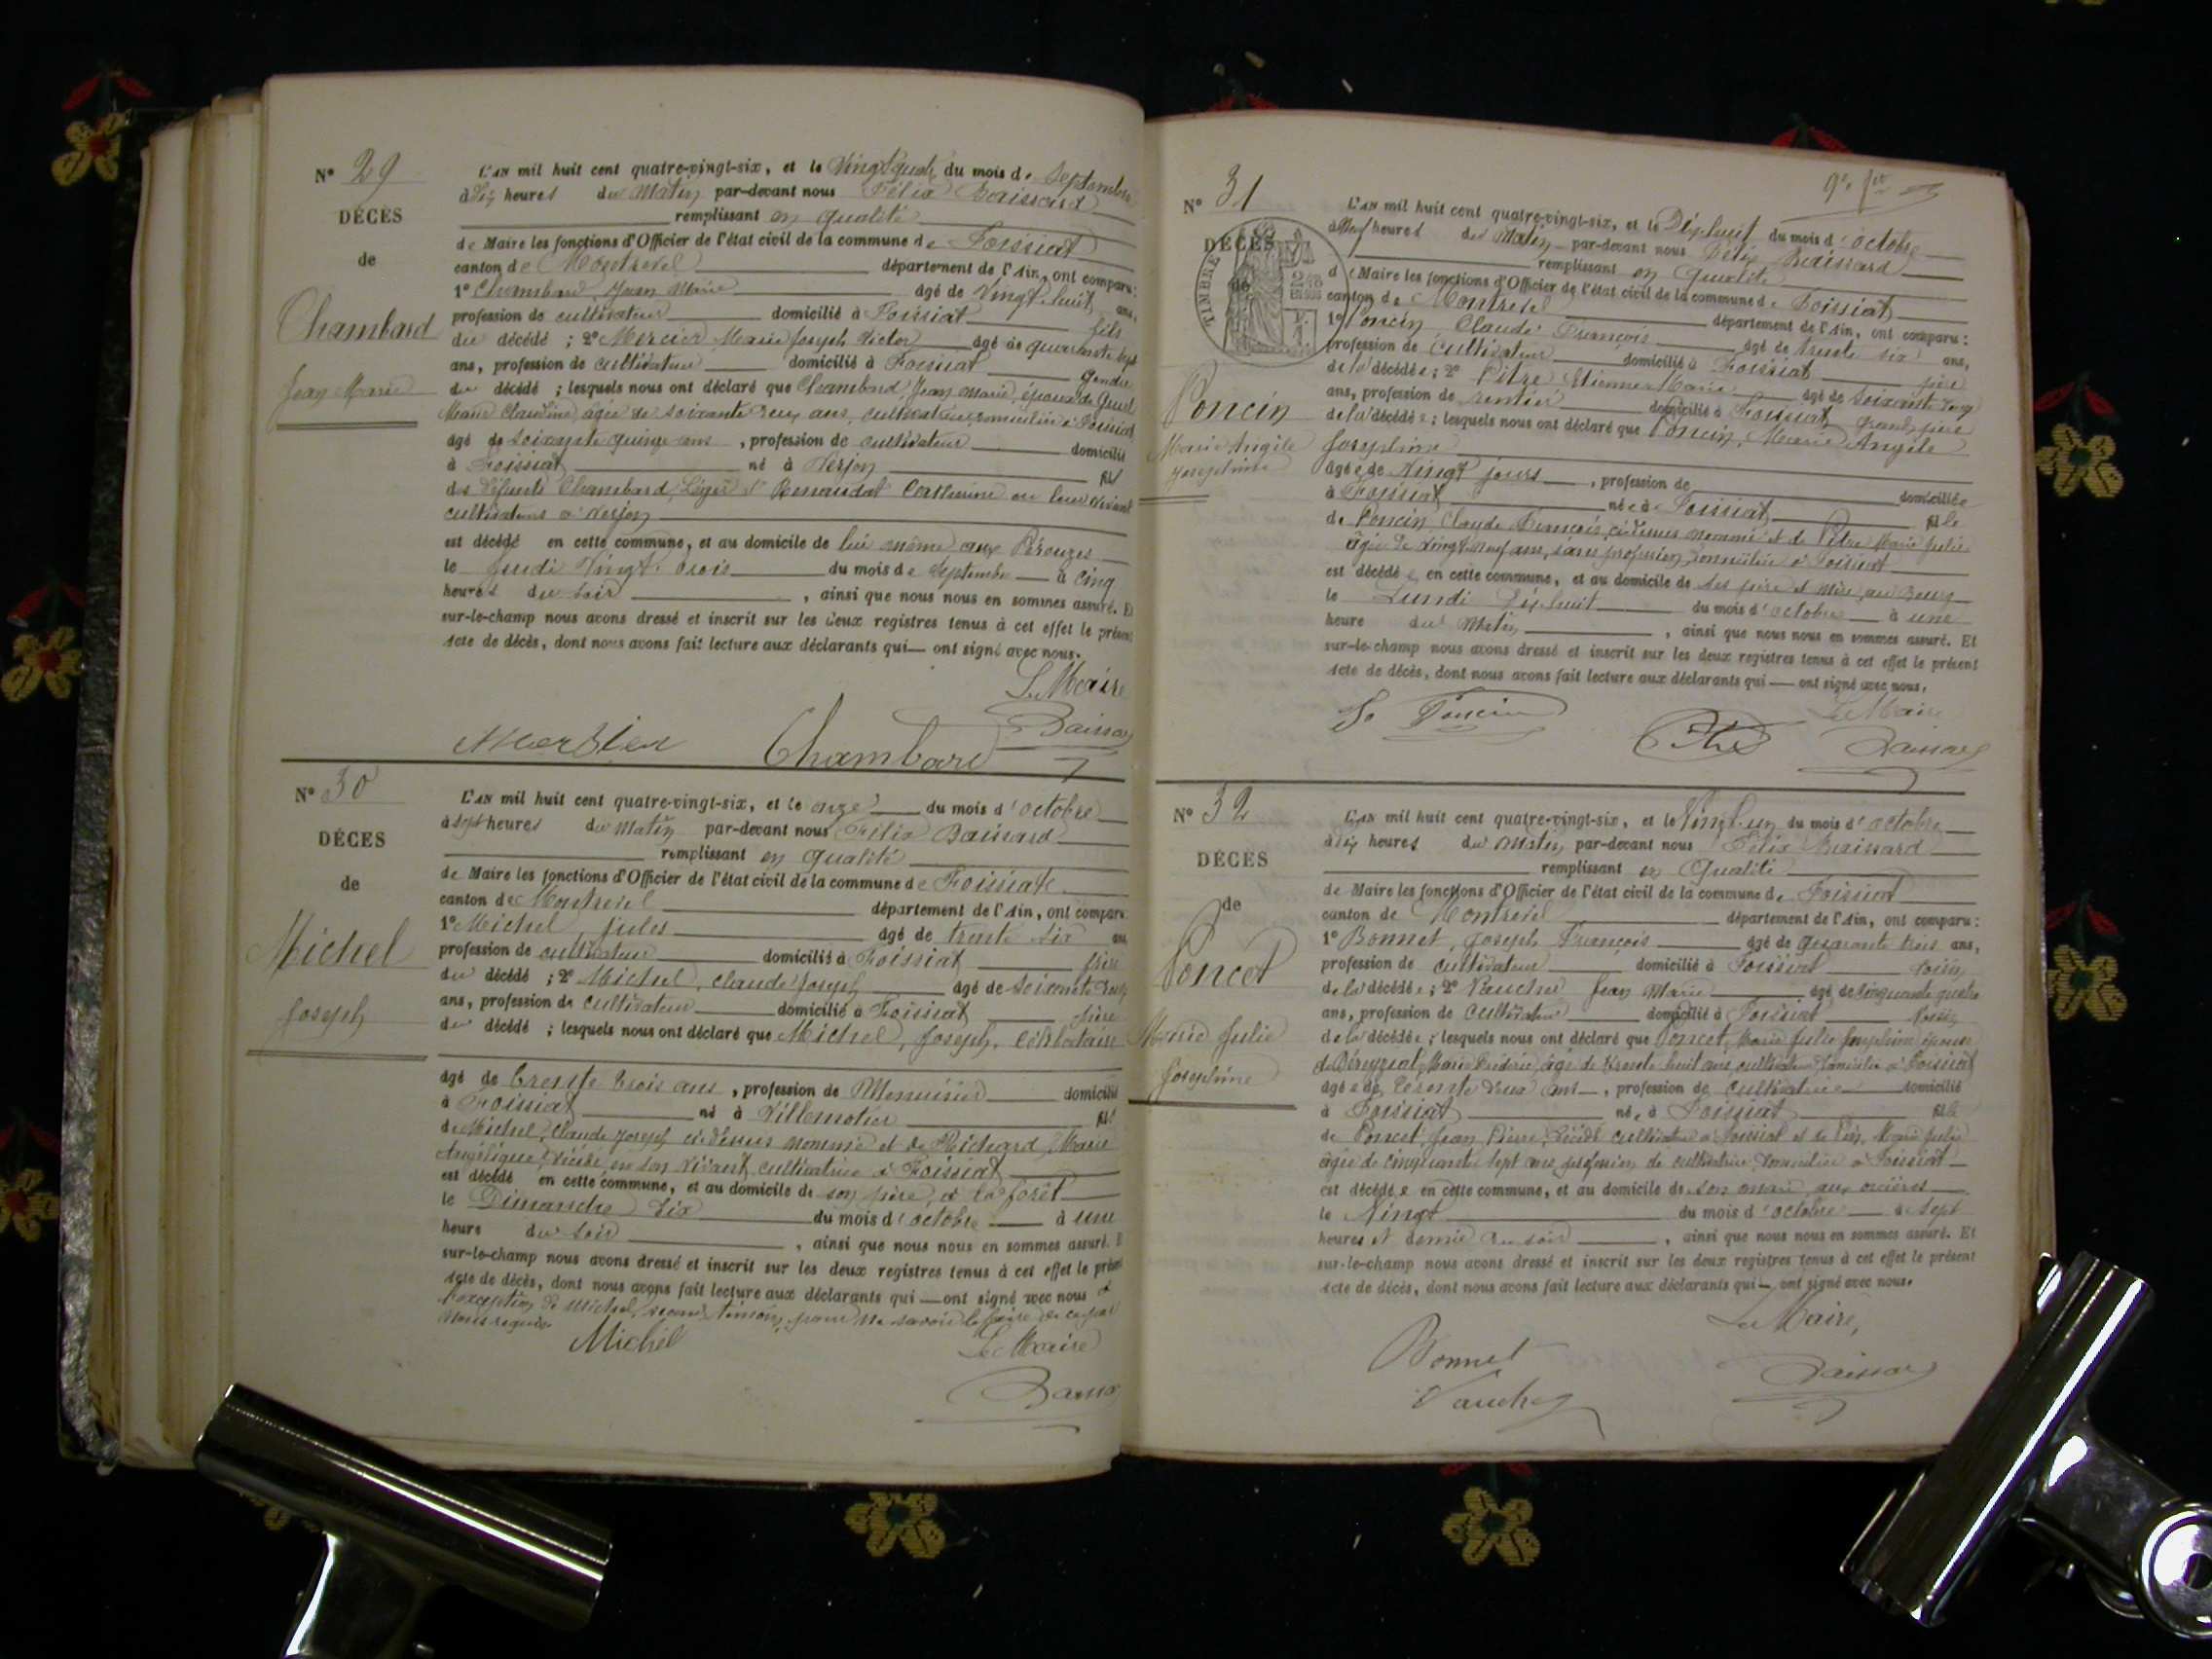 N° 29
DÉCÈS
de
Chambard
Jean Marie
L'AN mil huit cent quatre-vingt-six, et le Vingt quatre du mois de Septembre
à Dix heures du Matin par-devant nous Félix Baissard
remplissant en qualité
de Maire les fonctions d'Officier de l'état civil de la commune de Foissiat
canton de Montrevel département de l'Ain, ont comparu:
1° Chambard, Jean Marie âgé de Vingt huit ans,
profession de cultivateur domicilié à Foissiat fils
du décédé ; 2° Mercier Marie Joseph Victor âgé de quarante sept
ans, profession de cultivateur domicilié à Foissiat gendre
du décédé ; lesquels nous ont déclaré que Chambard, Jean Marie, époux de
Marie Claudine, âgée de soixante deux ans, cultivatrice, domiciliée à Foissiat
âgé de soixante quinze ans, profession de cultivateur domicilié
à Foissiat né à Verjon fils
de défunts Chambard, Léger et Catherine en leur vivant
cultivateurs à Verjon
est décédé en cette commune, et au domicile de lui même aux Pérouzes
le Jeudi Vingt trois du mois de Septembre à cinq
heures du soir, ainsi que nous nous en sommes assuré. Et
sur-le-champ nous avons dressé et inscrit sur les deux registres tenus à cet effet le présent
acte de décès, dont nous avons fait lecture aux déclarants qui ont signé avec nous.
Le Maire
Mercier Chambard Baissard
N° 30
DÉCÈS
de
Michel
Joseph
L'AN mil huit cent quatre-vingt-six, et le onze du mois d'octobre
à sept heures du Matin par-devant nous Félix Baissard
remplissant en qualité
de Maire les fonctions d'Officier de l'état civil de la commune de Foissiat
canton de Montrevel département de l'Ain, ont comparu
1° Michel Jules âgé de trente six ans
profession de cultivateur domicilié à Foissiat frère
du décédé ; 2° Michel, Claude Joseph âgé de soixante
ans, profession de cultivateur domicilié à Foissiat père
du décédé ; lesquels nous ont déclaré que Michel, Joseph, célibataire
âgé de trente trois ans, profession de Menuisier domicilié
à Foissiat né à Villemotier fils
de Michel, Claude Joseph ci-dessus nommé et de Richard, Marie
Angélique, décédée, en son vivant cultivatrice à Foissiat
est décédé en cette commune, et au domicile de son père, à la forêt
le Dimanche dix du mois d'octobre à une
heure du soir, ainsi que nous nous en sommes assuré. E
sur-le-champ nous avons dressé et inscrit sur les deux registres tenus à cet effet le présent
acte de décès, dont nous avons fait lecture aux déclarants qui ont signé avec nous à
l'exception de Michel, second témoin, pour ne savoir le faire de ce par
nous requis.
Michel Le Maire
Baissard
N° 31
DÉCÈS
de
TIMBRE
Poncin
Marie Angèle
Joséphine
L'AN mil huit cent quatre-vingt-six, et le Dix huit du mois d'octobre
à Neuf heures du Matin par-devant nous Félix Baissard
remplissant en qualité
de Maire les fonctions d'Officier de l'état civil de la commune de Foissiat
canton de Montrevel département de l'Ain, ont comparu:
1° Poncin, Claude François âgé de trente six ans,
profession de cultivateur domicilié à Foissiat père
de la décédée ; 2° Pitre Etienne Marie âgé de soixante
ans, profession de rentier domicilié à Foissiat Grand père
de la décédée ; lesquels nous ont déclaré que Poncin, Marie Angèle
Joséphine
âgée de Vingt jours, profession de domiciliée
à Foissiat née à Foissiat fille
de Poncin, Claude François, ci-dessus nommé et de Pitre Marie Julie
âgée de vingt neuf ans, sans profession, domiciliée à Foissiat
est décédée en cette commune, et au domicile de ses père et mère, au Bourg
le Lundi Dix huit du mois d'octobre à une
heure du Matin, ainsi que nous nous en sommes assuré. Et
sur-le-champ nous avons dressé et inscrit sur les deux registres tenus à cet effet le présent
acte de décès, dont nous avons fait lecture aux déclarants qui ont signé avec nous.
Poncin Pitre Le Maire
Baissard
N° 32
DÉCÈS
de
Poncet
Marie Julie
Joséphine
L'AN mil huit cent quatre-vingt-six, et le Vingt un du mois d'octobre
à dix heures du Matin par-devant nous Félix Baissard
remplissant en Qualité
de Maire les fonctions d'Officier de l'état civil de la commune de Foissiat
canton de Montrevel département de l'Ain, ont comparu:
1° Bonnet, Joseph François âgé de quarante trois ans,
profession de cultivateur domicilié à Foissiat voisin
de la décédée ; 2° Vaucher Jean Marie âgé de cinquante quatre
ans, profession de cultivateur domicilié à Foissiat voisin
de la décédée ; lesquels nous ont déclaré que Poncet, Marie Julie Joséphine épouse
de Marie Frédéric, âgé de trente huit ans cultivateur domicilié à Foissiat
âgée de trente deux ans, profession de cultivatrice domicilié
à Foissiat née à Foissiat fille
de Poncet, Jean Pierre, décédé cultivateur à Foissiat et de Marie Julie
âgée de cinquante sept ans profession de cultivatrice, domiciliée à Foissiat
est décédée en cette commune, et au domicile de son mari, aux
le Vingt du mois d'octobre à sept
heures et demie du soir, ainsi que nous nous en sommes assuré. Et
sur-le-champ nous avons dressé et inscrit sur les deux registres tenus à cet effet le présent
acte de décès, dont nous avons fait lecture aux déclarants qui ont signé avec nous.
Le Maire,
Bonnet Baissard
Vaucher